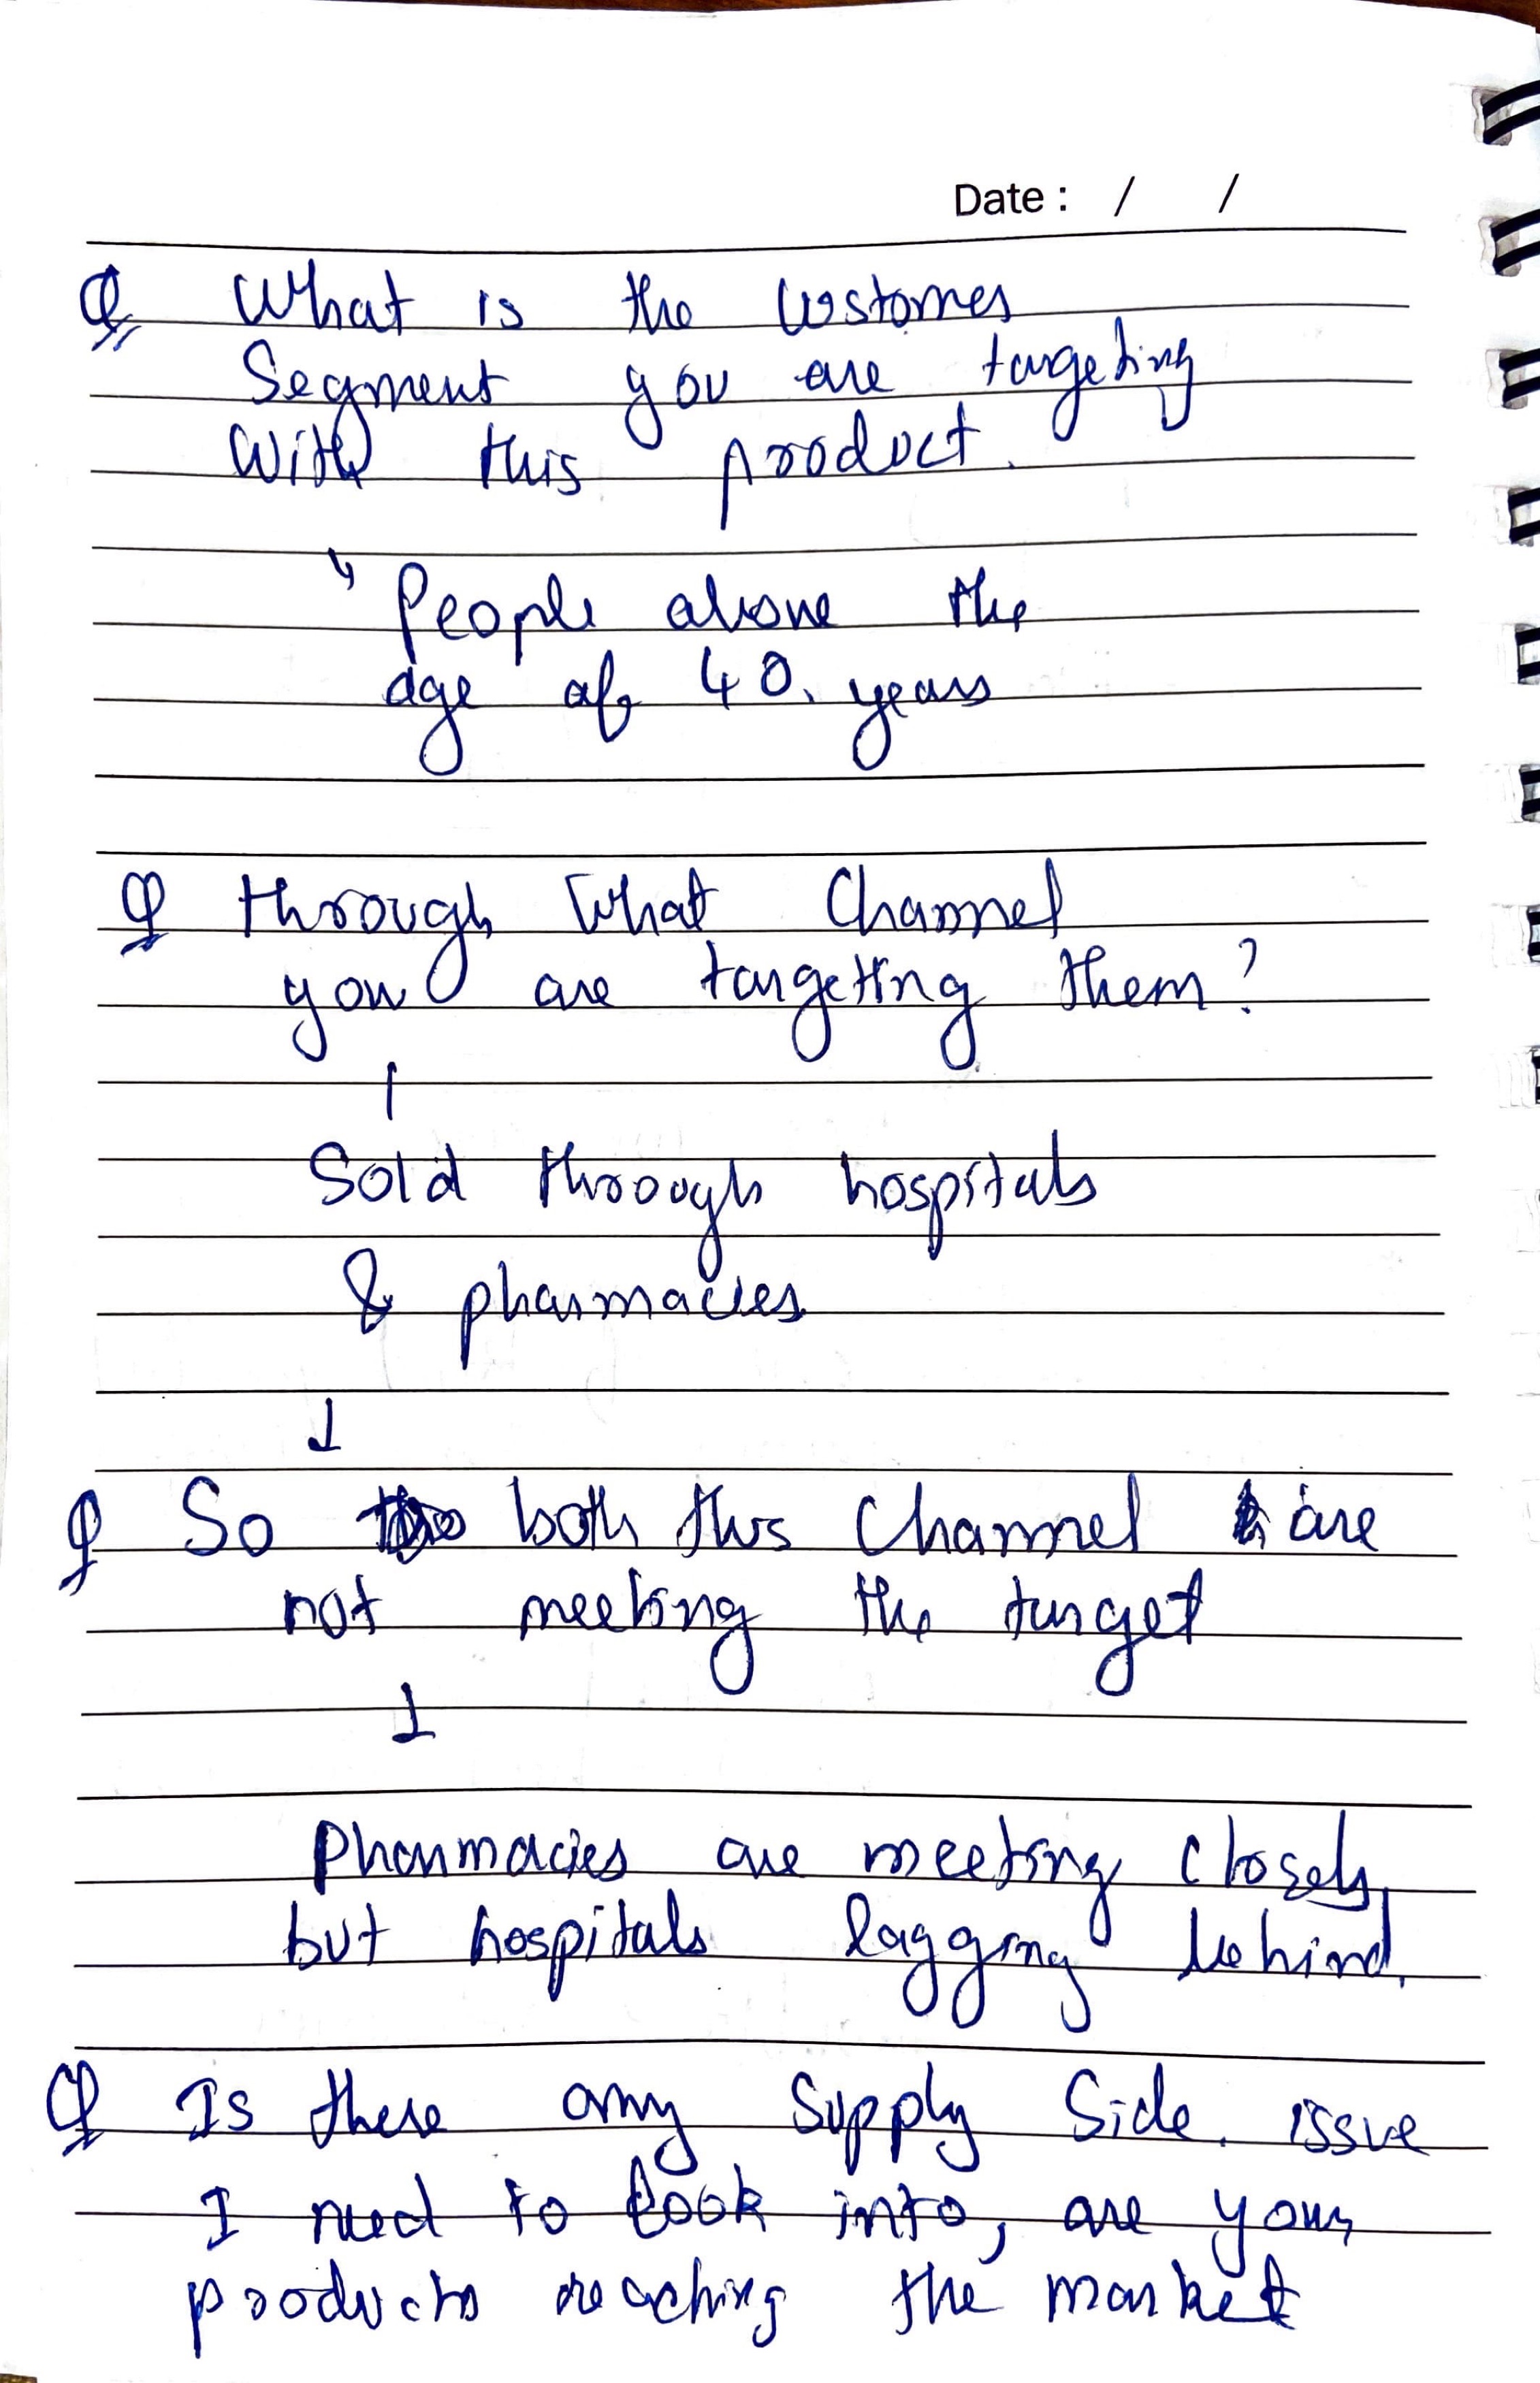 Date : / /
Q What is the Customer
Segment you are targeting
With this product.
↳ People above the
age of 40. years
Q through What Channel
you are targeting them?
Sold through hospitals
& pharmacies
↓
Q So both this Channel are
not meeting the target
↓
Pharmacies are meeting closely,
but hospitals lagging behind.
Q Is there any Supply Side. issue
I need to look into, are your
products reaching the market